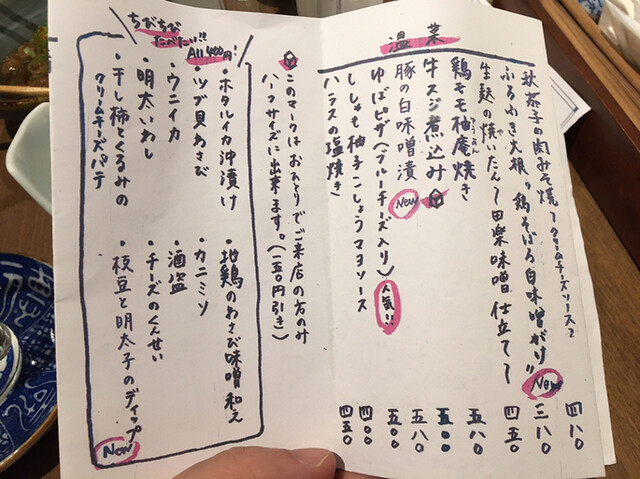 温菜
秋茄子の肉みそ焼〜クリームチーズソース〜 四八〇
ふろふき大根〝鶏そぼろ白味噌がけ〟 New 三八〇
生麩の焼いたん〜田楽味噌仕立て〜 四五〇
鶏モモ柚庵焼き 五八〇
牛スジ煮込み 五〇〇
豚の白味噌漬 New 五八〇
ゆばピザ(ブルーチーズ入り) 人気!! 五〇〇
ししゃも柚子こしょうマヨソース 四〇〇
ハラスの塩焼き 四五〇
このマークはおひとりでご来店の方のみ
ハーフサイズに出来ます。(一五〇円引き)
ちびちび
たべたい!!!
All 400円!
・ホタルイカ沖漬け
・ツブ貝わさび
・ウニイカ
・明太いわし
・干し柿とくるみの
クリームチーズパテ
・地鶏のわさび味噌和え
・カニミソ
・酒盗
・チーズのくんせい
・枝豆と明太子のディップ New